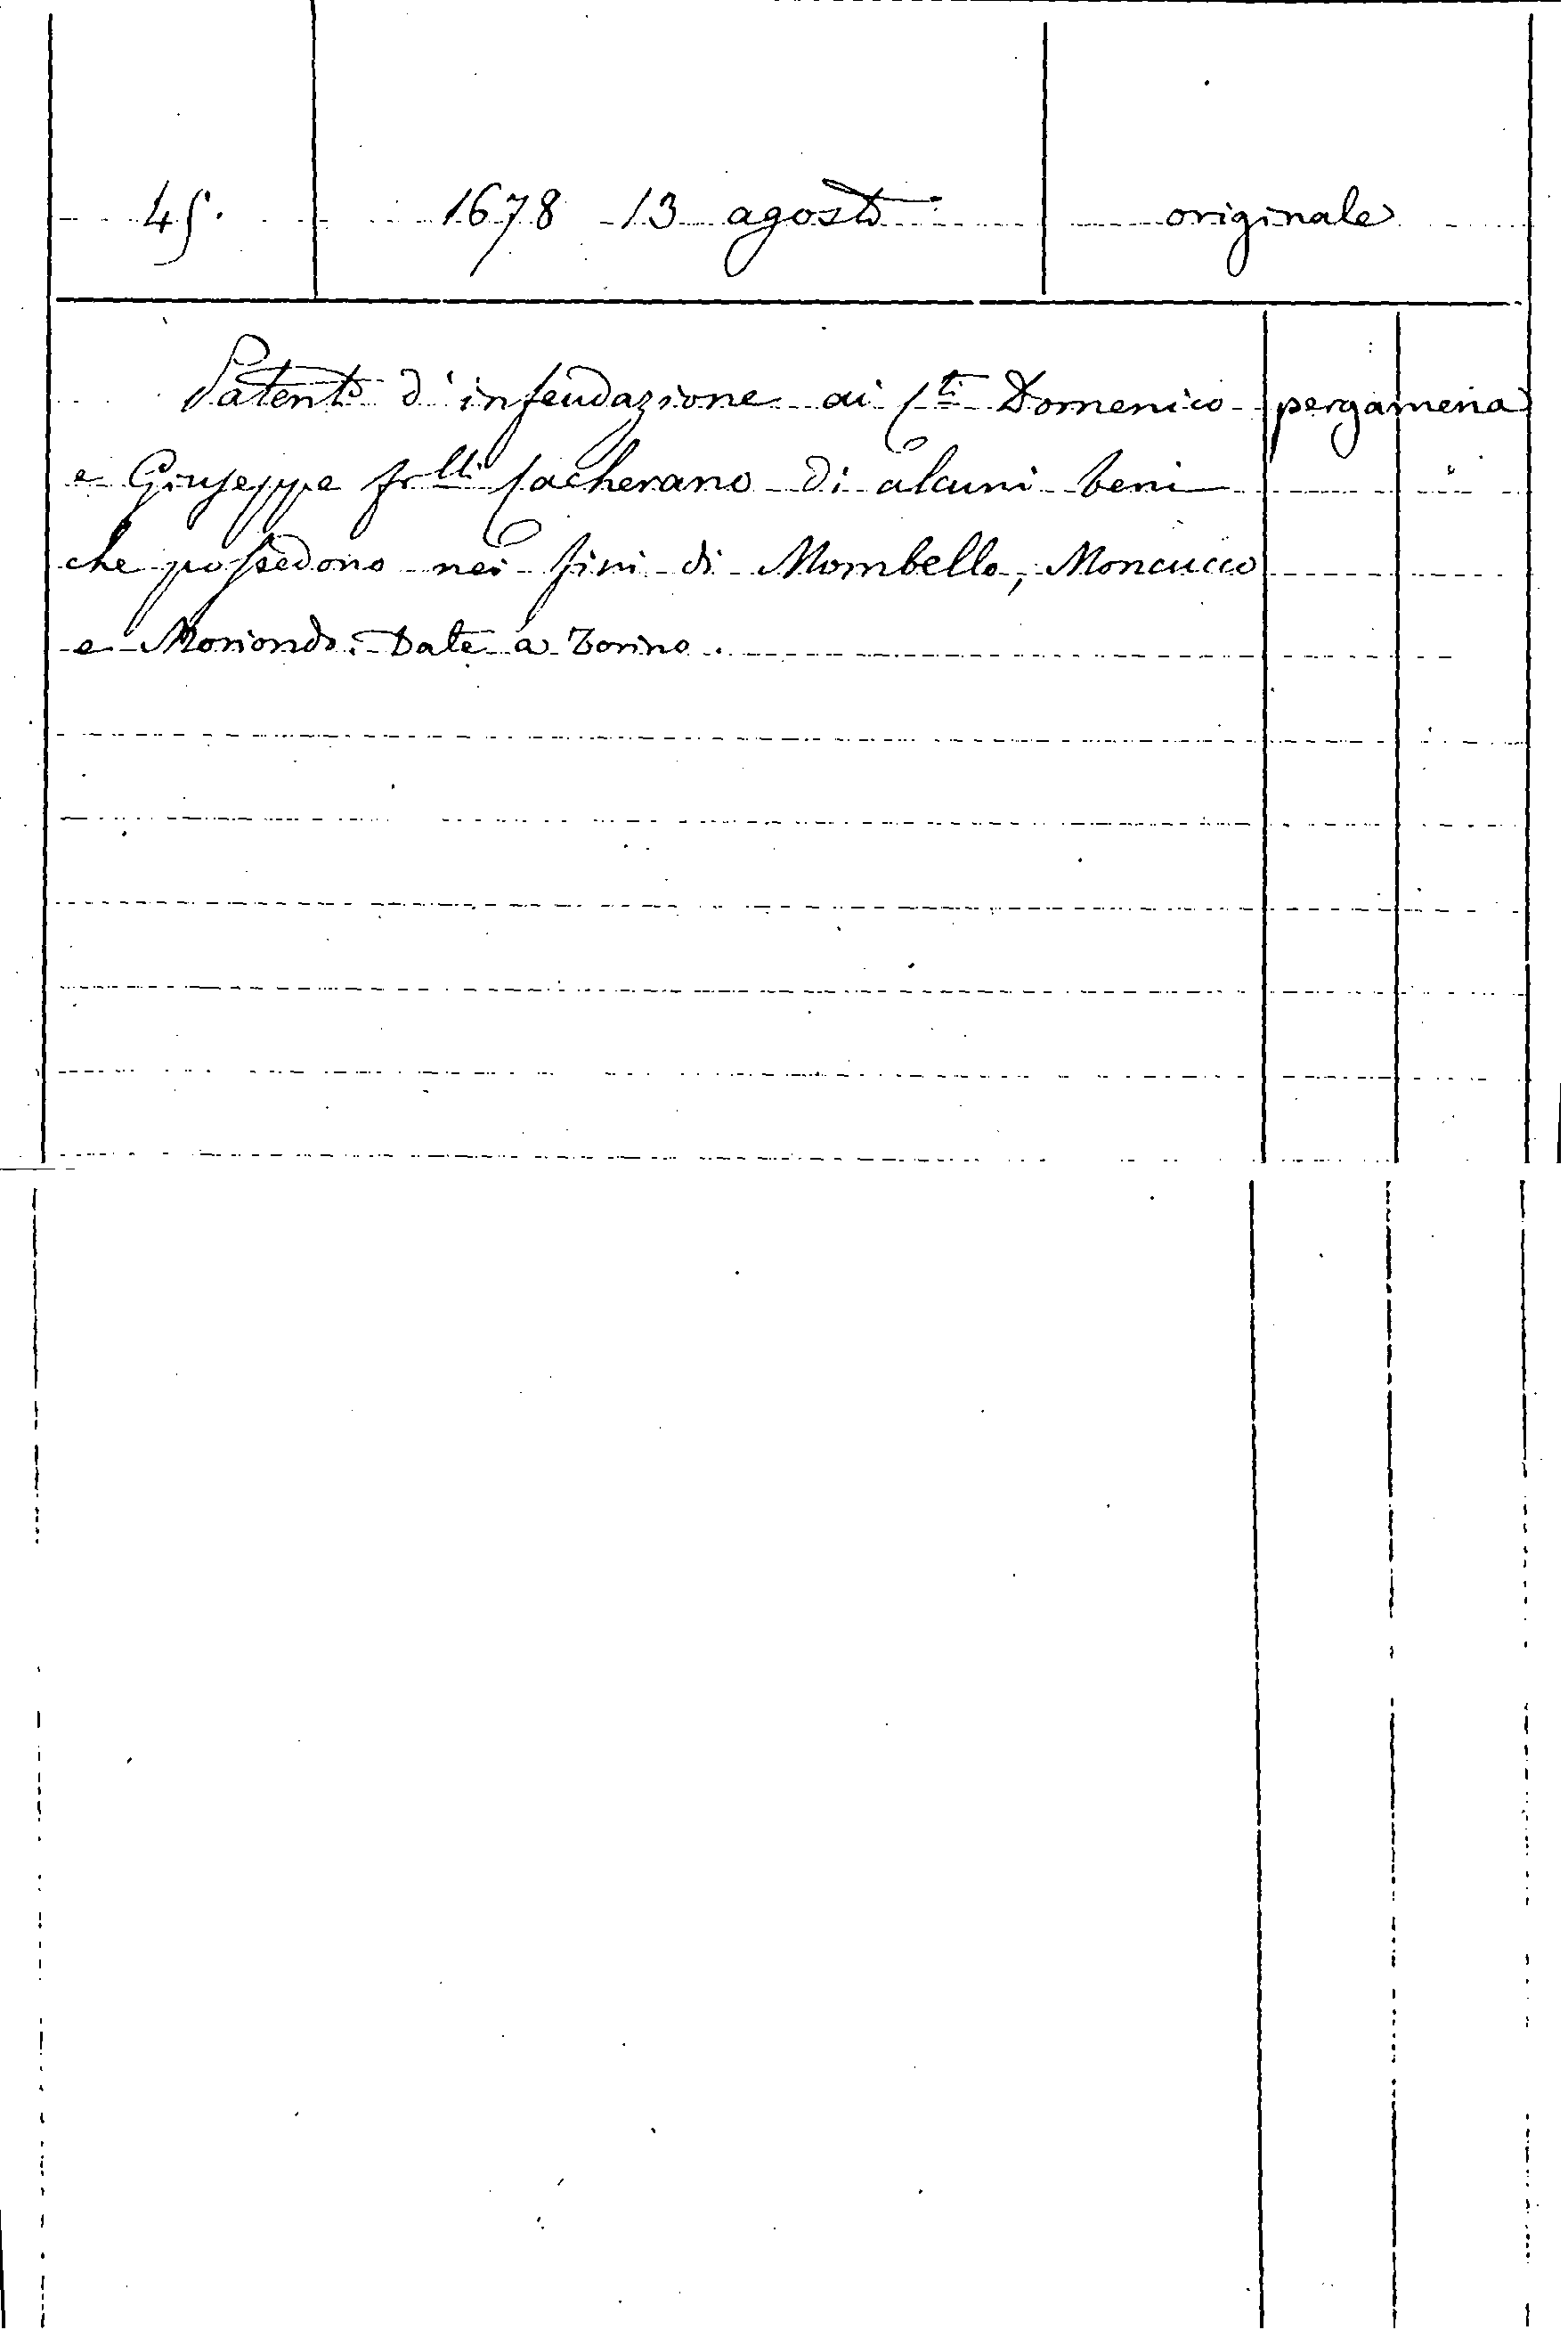 45. 1678 13 agosto originale
Patente d'infeudazione ai Cti Domenico pergamena
e Giuseppe frlli Cacherano di alcuni beni "
che possedono nei fini di Mombello, Moncucco
e Moriondo. Date a Torino.